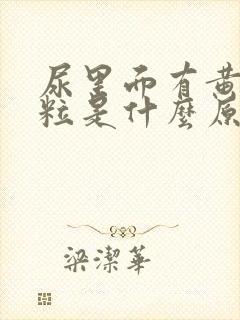 尿里面有黄
粒是什麼原
梁潔華